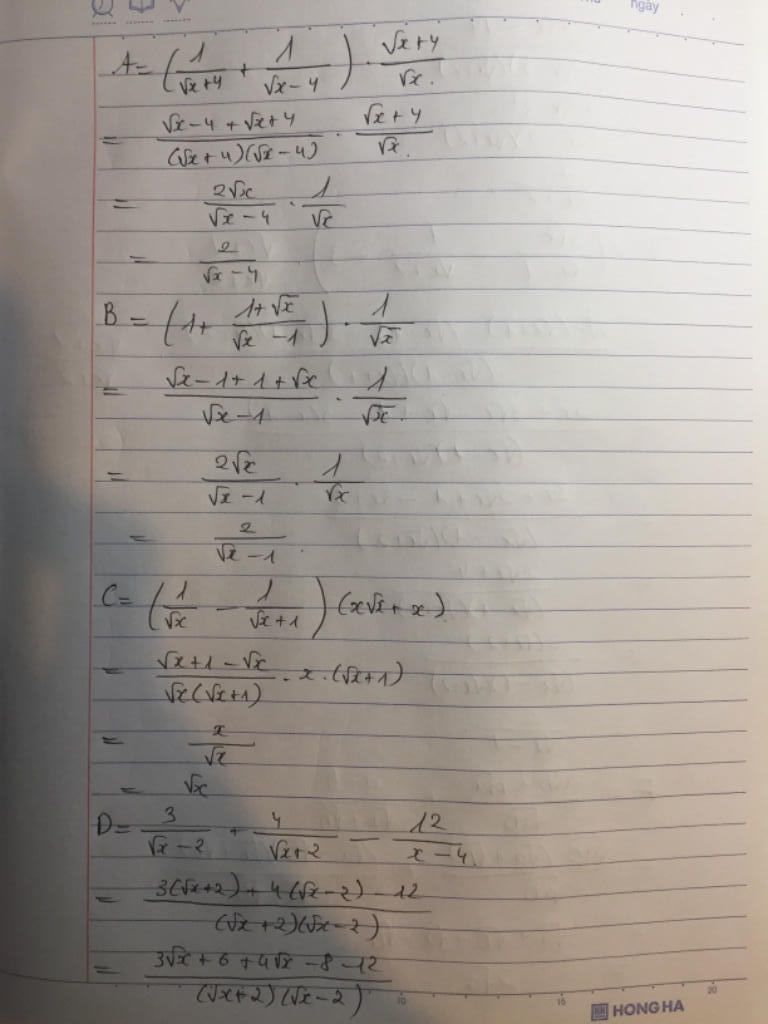 ngày
A = (1/(√x+4) + 1/(√x-4)) · (√x+4)/√x.
= (√x-4+√x+4)/((√x+4)(√x-4)) · (√x+4)/√x.
= 2√x/(√x-4) · 1/√x
= 2/(√x-4)
B = (1+ (1+√x)/(√x-1)) · 1/√x
= (√x-1+1+√x)/(√x-1) · 1/√x.
= 2√x/(√x-1) · 1/√x
= 2/(√x-1).
C = (1/√x - 1/(√x+1)) (x√x+x).
= (√x+1-√x)/(√x(√x+1)) · x · (√x+1)
= x/√x
= √x
D = 3/(√x-2) + 4/(√x+2) - 12/(x-4)
= (3(√x+2)+4(√x-2)-12)/((√x+2)(√x-2))
= (3√x+6+4√x-8-12)/((√x+2)(√x-2))
10 15 20
HONG HA